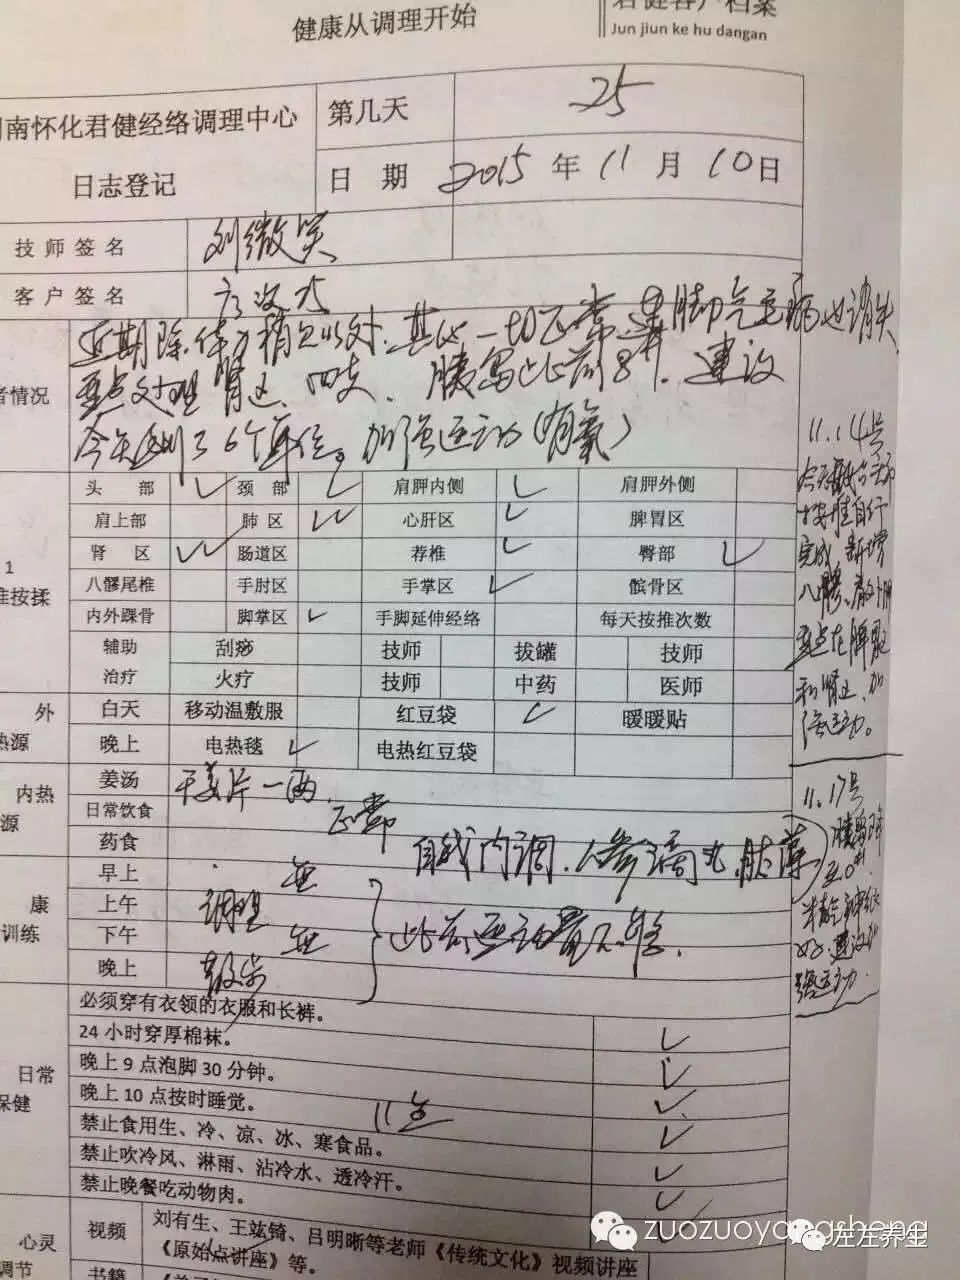 健康从调理开始
君健客户档案
Jun jiun ke hu dangan
南怀化君健经络调理中心
日志登记
第几天 25
日 期 2015 年 11 月 10 日
技 师 签 名 刘微笑
客 户 签 名
者情况
近期除体力稍欠以外,其他一切正常,连脚气毛病也消失
重点处理肾区、四支、胰岛
建议
今天 6个单位。加强运动(有氧)
1
推按揉
头 部 ✓ 颈 部 ✓ 肩胛内侧 ✓ 肩胛外侧
肩上部 肺 区 ✓✓ 心肝区 ✓ 脾胃区
肾 区 ✓✓ 肠道区 荐椎 ✓ 臀部 ✓
八髎尾椎 手肘区 手掌区 ✓ 髌骨区
内外踝骨 脚掌区 ✓ 手脚延伸经络 每天按推次数
辅助 刮痧 技师 拔罐 技师
治疗 火疗 技师 中药 医师
外
热源
白天 移动温敷服 红豆袋 ✓ 暖暖贴
晚上 电热毯 ✓ 电热红豆袋
内热
源
姜汤 干姜片一两
日常饮食 正常
药食 自我内调、人参
康
训练
早上 无
上午 调理
下午 无
晚上 散步
此前运动量不够.
日常
保健
必须穿有衣领的衣服和长裤。
24 小时穿厚棉袜。 ✓
晚上 9 点泡脚 30 分钟。 ✓
晚上 10 点按时睡觉。 11点 ✓
禁止食用生、冷、凉、冰、寒食品。 ✓
禁止吹冷风、淋雨、沾冷水、透冷汗。 ✓
禁止晚餐吃动物肉。 ✓
心灵
调节
视频
刘有生、王竑锜、吕明晰等老师《传统文化》视频讲座
《原始点讲座》等。
书籍
11.14号
今天
按推自行
完成 新增
八髎、
重点在脾胃
和肾区、加
强运动。
11.17号
胰岛降
至0
建议加
强运动.
zuozuoyangsheng
左左养生